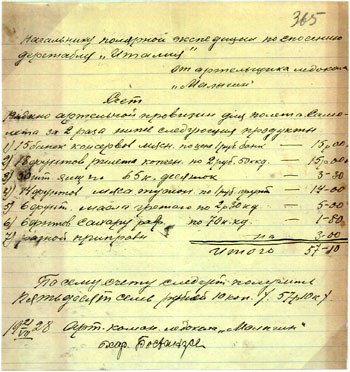 365
Начальнику полярной экспедиции по спасению
дирижабля „Италия"
от артельщика ледокола
„Малыгин"
Счет
Выдано артельной провизии для полета само-
лета за 2 раза ниже следующия продукты
1) 15 банок консервов мясн. по цене 1 руб банк — 15,00
2) фунтов копчен. по 2 руб. 50 кд. — 15,00
3) 50 шт яиц по 65 к. десяток — 3-30
4) 14 фунтов мяса по 1 руб фунт — 14-00
5) 6 фунт. масла по — 5-00
6) 6 фунтов сахару раф. по кд. — 1-80
7) разной приправы на 3,00
Итого 57-10
По сему счету следует получить
Пятьдесят семь рублей 10 коп. / 57 р 10 к /
19 28 Арт. коман. ледокол „Малыгин"